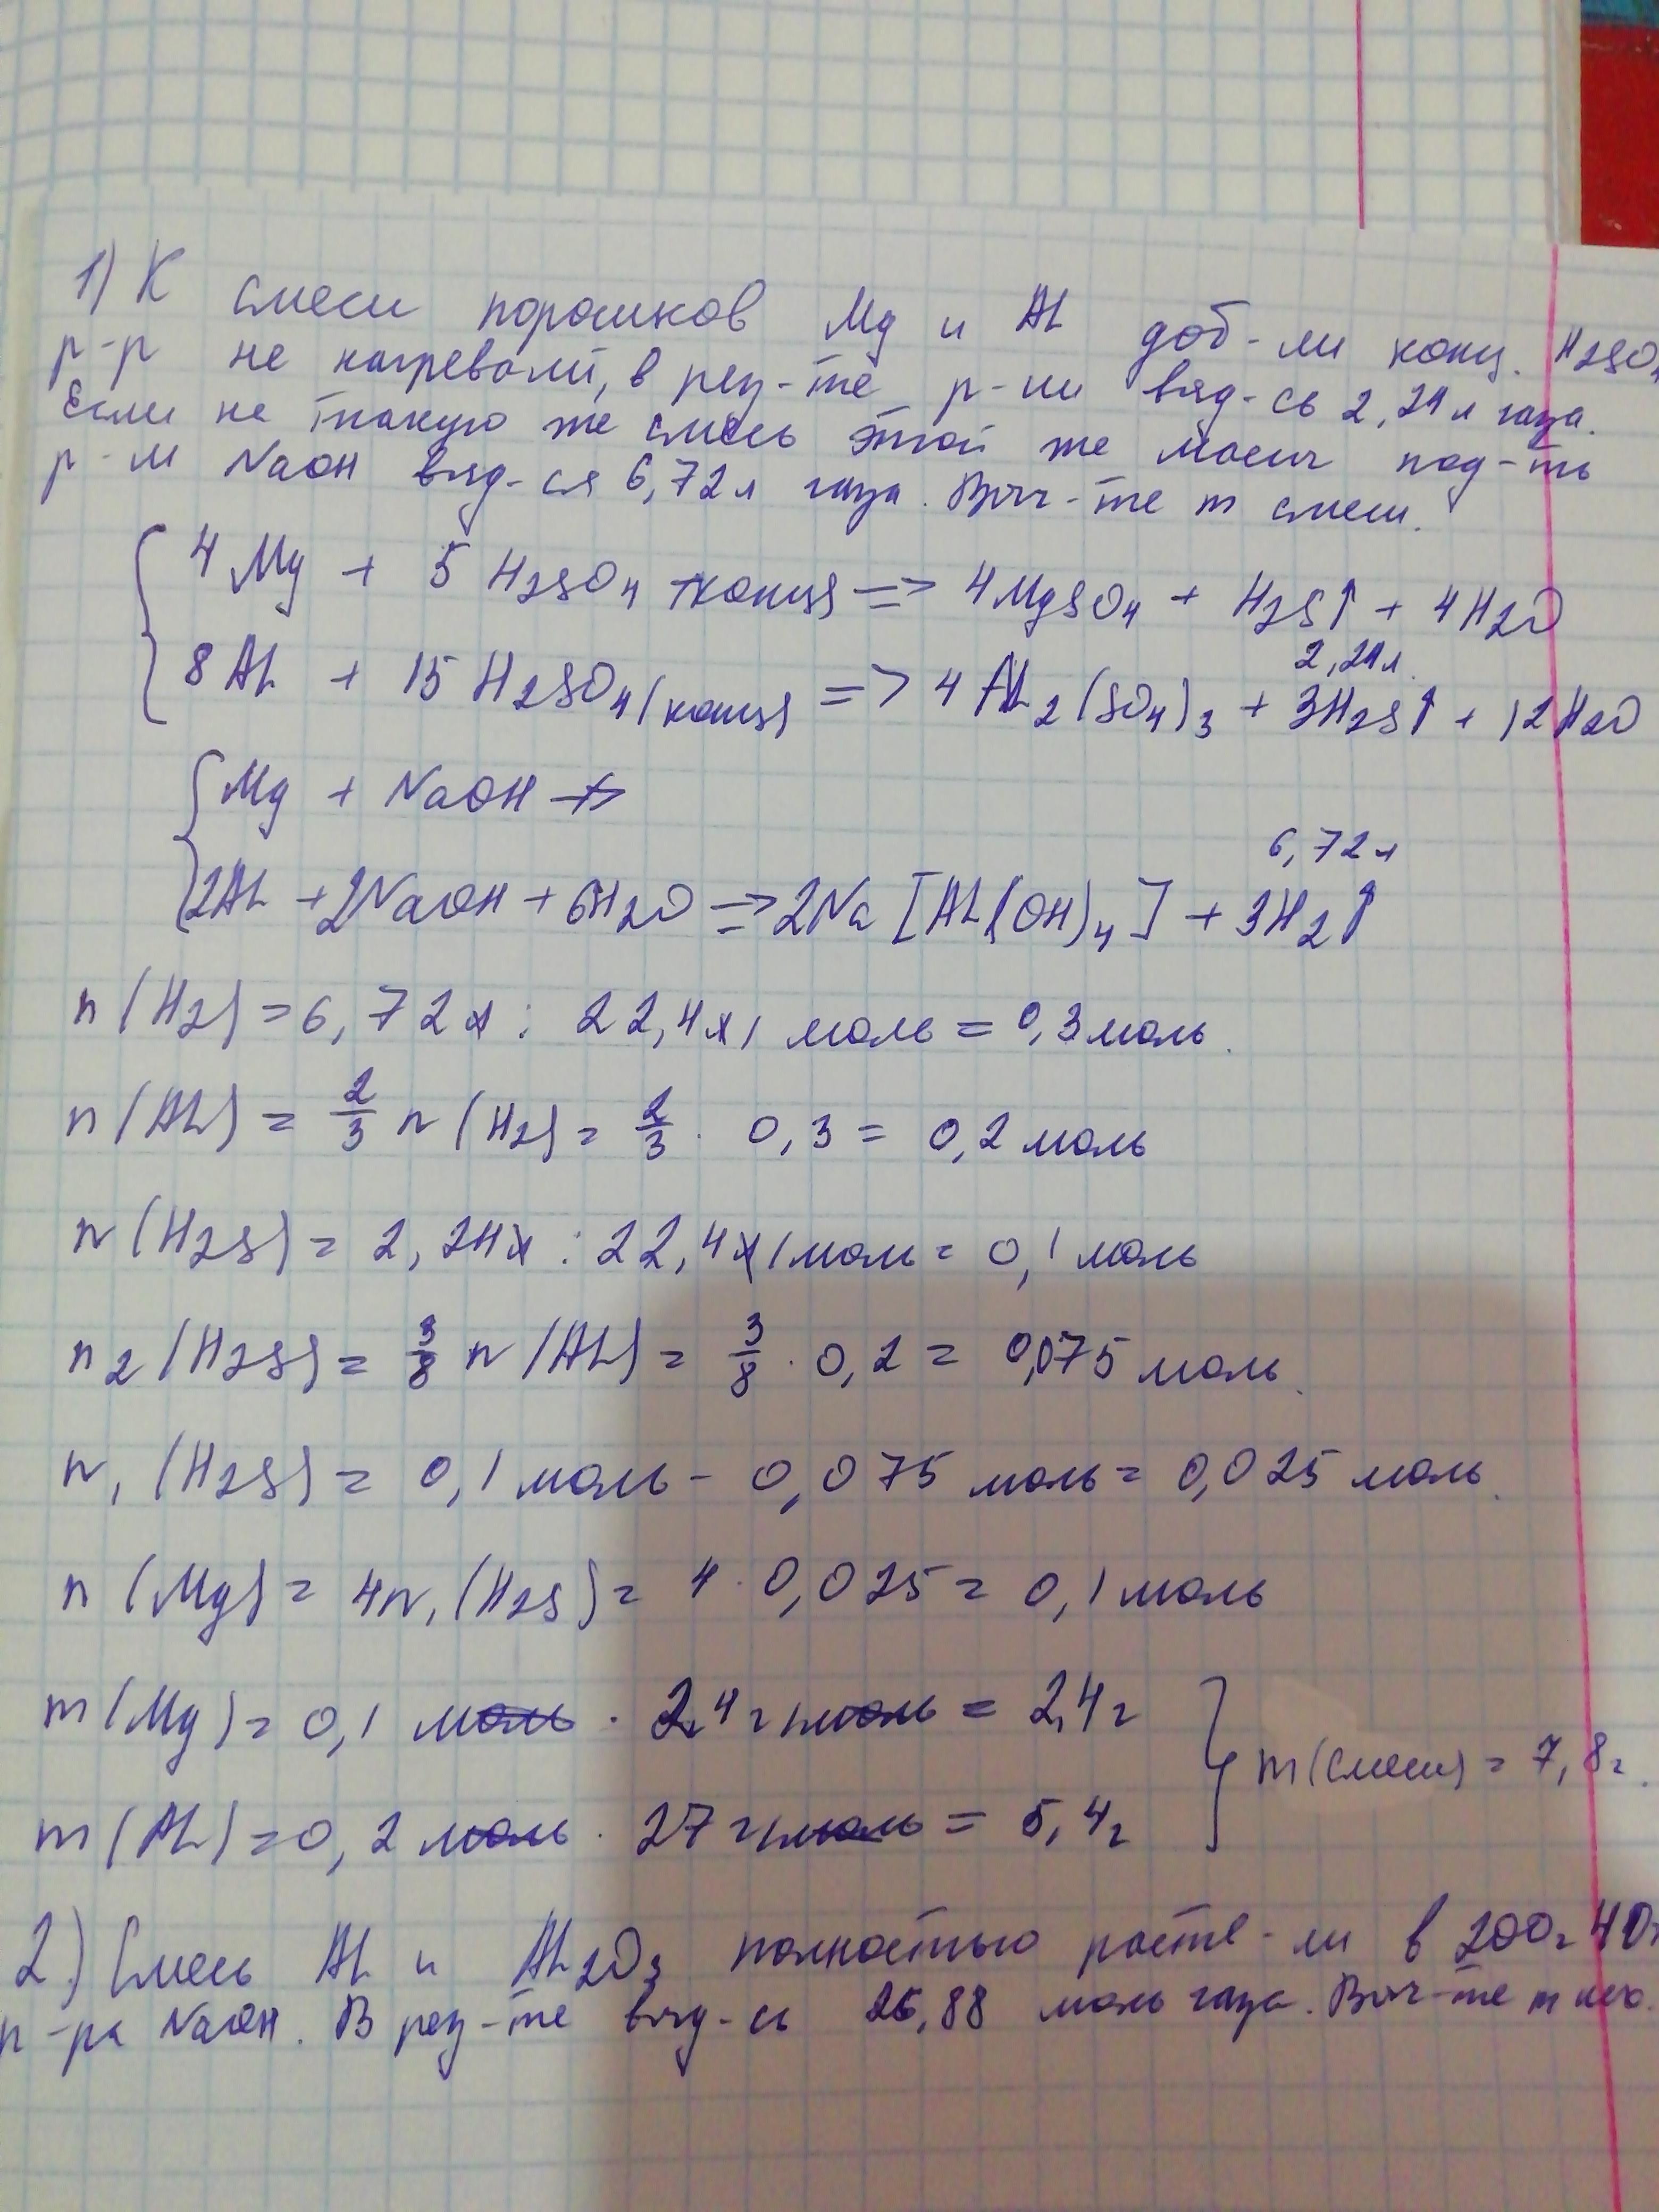 1) К смеси порошков Mg и Al доб-ли конц. H2SO4
р-р не нагревали, в рез-те р-ии выд-сь 2,24 л газа.
Если на такую же смесь этой же массы под-ть
р-м NaOH выд-ся 6,72 л газа. Выч-те m смеси.
4 Mg + 5 H2SO4 (конц) => 4MgSO4 + H2S↑ + 4H2O
2,24 л.
8 Al + 15 H2SO4 (конц) => 4 Al2(SO4)3 + 3H2S↑ + 12H2O
Mg + NaOH ↛
6,72 л
2Al + 2NaOH + 6H2O => 2Na[Al(OH)4] + 3H2↑
n(H2) = 6,72 л : 22,4 л/моль = 0,3 моль.
n(Al) = 2/3 n(H2) = 2/3 · 0,3 = 0,2 моль
n(H2S) = 2,24 л : 22,4 л/моль = 0,1 моль
n2(H2S) = 3/8 n(Al) = 3/8 · 0,2 = 0,075 моль.
n1(H2S) = 0,1 моль - 0,075 моль = 0,025 моль.
n(Mg) = 4n1(H2S) = 4 · 0,025 = 0,1 моль
m(Mg) = 0,1 моль · 24 г/моль = 2,4 г
m(смеси) = 7,8 г.
m(Al) = 0,2 моль · 27 г/моль = 5,4 г
2.) Смесь Al и Al2O3 полностью раств-ли в 200 г 40%
р-ра NaOH. В рез-те выд-сь 26,88 моль газа. Выч-те m